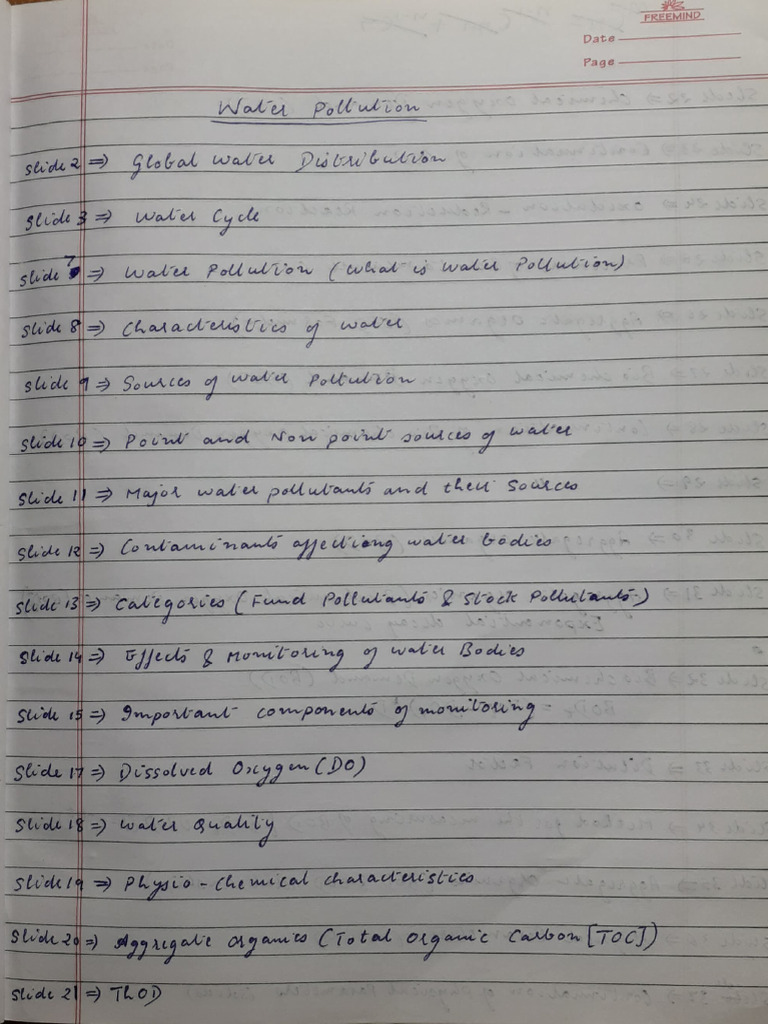 FREEMIND
Date
Page
Water Pollution
Slide 2 => Global water Distribution
Slide 3 => Water Cycle
Slide 7 => Water Pollution (What is water Pollution)
Slide 8 => Characteristics of water
Slide 9 => Sources of water Pollution
Slide 10 => Point and Non point sources of water
Slide 11 => Major water pollutants and their Sources
Slide 12 => Contaminants affectiong water bodies
Slide 13 => Categories (Fund Pollutants & Stock Pollutants)
Slide 14 => Effects & Monitoring of water Bodies
Slide 15 => Important components of monitoring
Slide 17 => Dissolved Oxygen (DO)
Slide 18 => Water Quality
Slide 19 => Physio-Chemical characteristics
Slide 20 => Aggregate organics (Total Organic Carbon [TOC])
Slide 21 => ThOD